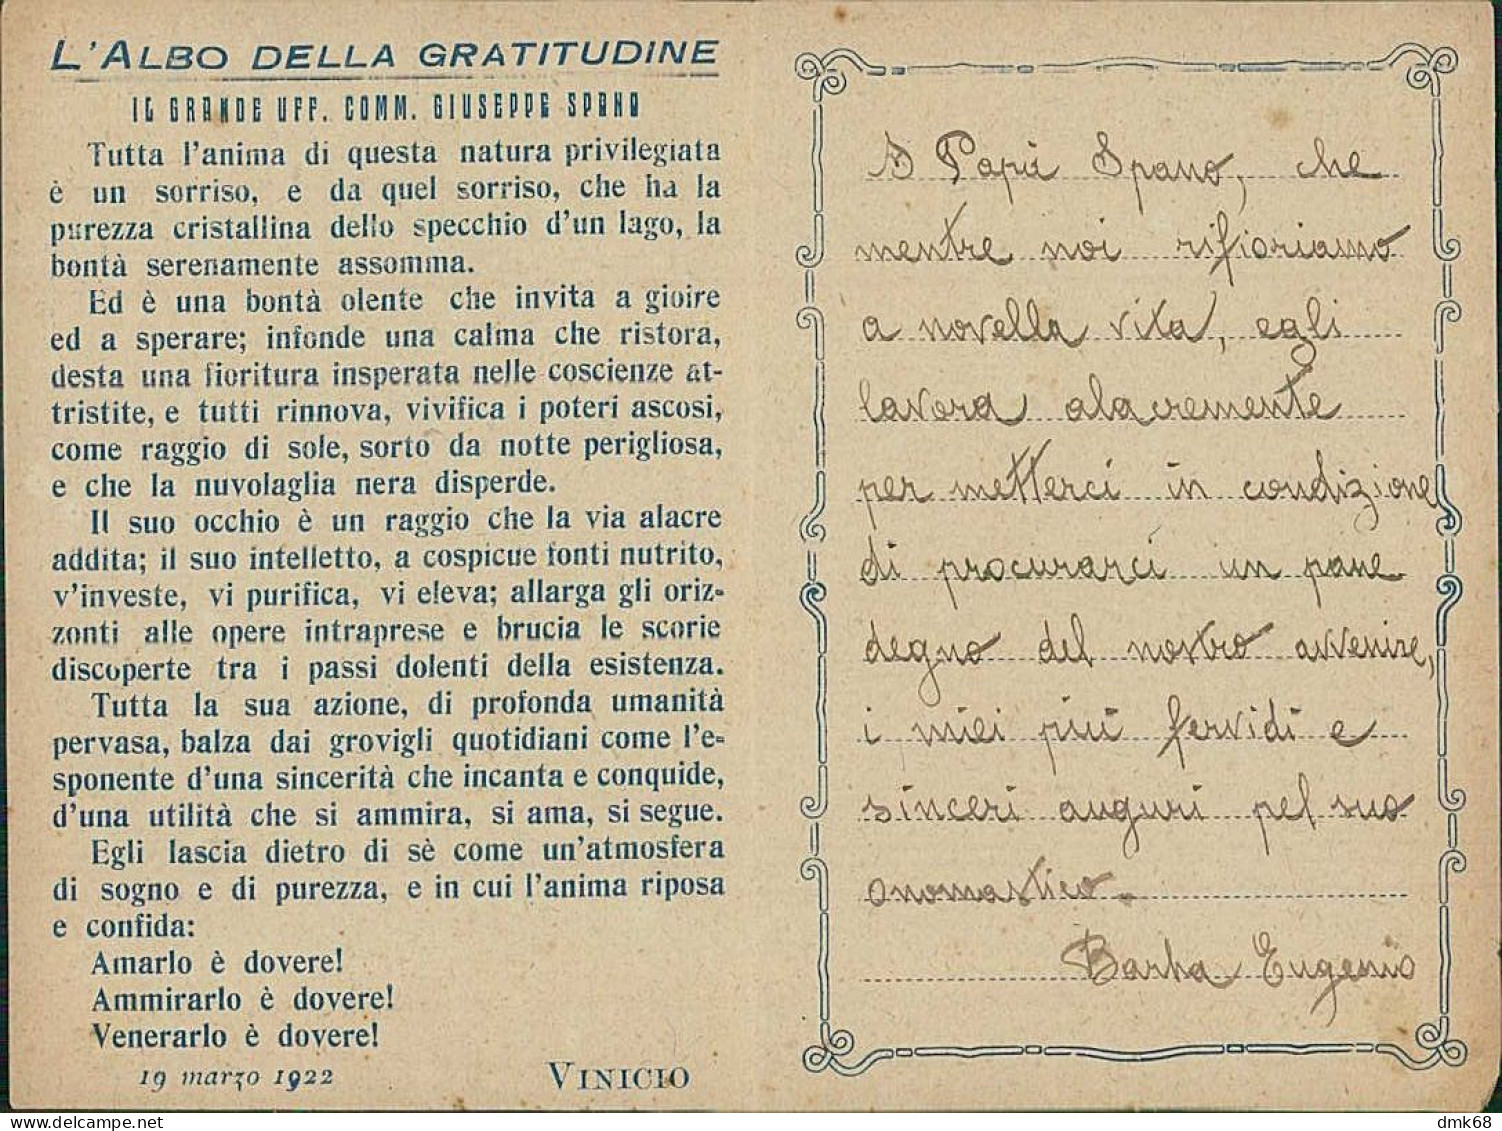 L'ALBO DELLA GRATITUDINE
IL GRANDE UFF. COMM. GIUSEPPE SPANO
Tutta l'anima di questa natura privilegiata
è un sorriso, e da quel sorriso, che ha la
purezza cristallina dello specchio d'un lago, la
bontà serenamente assomma.
Ed è una bontà olente che invita a gioire
ed a sperare; infonde una calma che ristora,
desta una fioritura insperata nelle coscienze at-
tristite, e tutti rinnova, vivifica i poteri ascosi,
come raggio di sole, sorto da notte perigliosa,
e che la nuvolaglia nera disperde.
Il suo occhio è un raggio che la via alacre
addita; il suo intelletto, a cospicue fonti nutrito,
v'investe, vi purifica, vi eleva; allarga gli oriz-
zonti alle opere intraprese e brucia le scorie
discoperte tra i passi dolenti della esistenza.
Tutta la sua azione, di profonda umanità
pervasa, balza dai grovigli quotidiani come l'e-
sponente d'una sincerità che incanta e conquide,
d'una utilità che si ammira, si ama, si segue.
Egli lascia dietro di sè come un'atmosfera
di sogno e di purezza, e in cui l'anima riposa
e confida:
Amarlo è dovere!
Ammirarlo è dovere!
Venerarlo è dovere!
19 marzo 1922 VINICIO
A Papà Spano, che
mentre noi rifioriamo
a novella vita, egli
lavora alacremente
per metterci in condizione
di procurarci un pane
degno del nostro avvenire,
i miei più fervidi e
sinceri auguri pel suo
onomastico.
Barba Eugenio
delcampe.net
dmk68